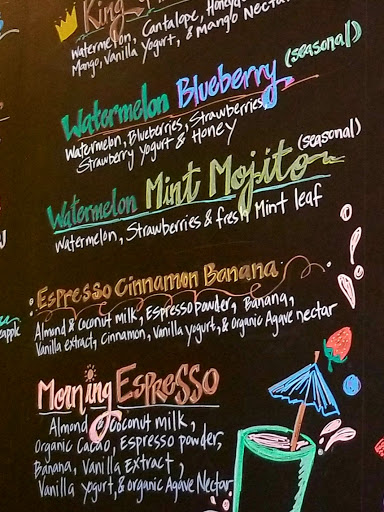 King
Watermelon, Cantalope, Honeyd
Mango, Vanilla Yogurt, & Mango Nectar
Watermelon Blueberry (seasonal)
Watermelon, Blueberries, Strawberries,
Strawberry Yogurt & Honey
(seasonal)
Watermelon Mint Mojito
Watermelon, Strawberries & fresh Mint leaf
Espresso Cinnamon Banana
Almond & coconut milk, Espresso powder, Banana,
Vanilla extract, Cinnamon, Vanilla yogurt, & organic Agave nectar
eapple
Morning Espresso
Almond & Coconut milk,
Organic Cacao, Espresso powder,
Banana, Vanilla Extract,
Vanilla yogurt, & organic Agave Nectar